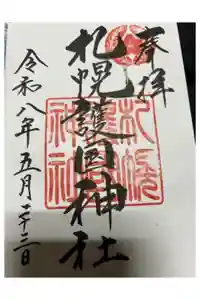 奉拝
札幌護国神社
札幌護国神社
令和八年五月二十三日